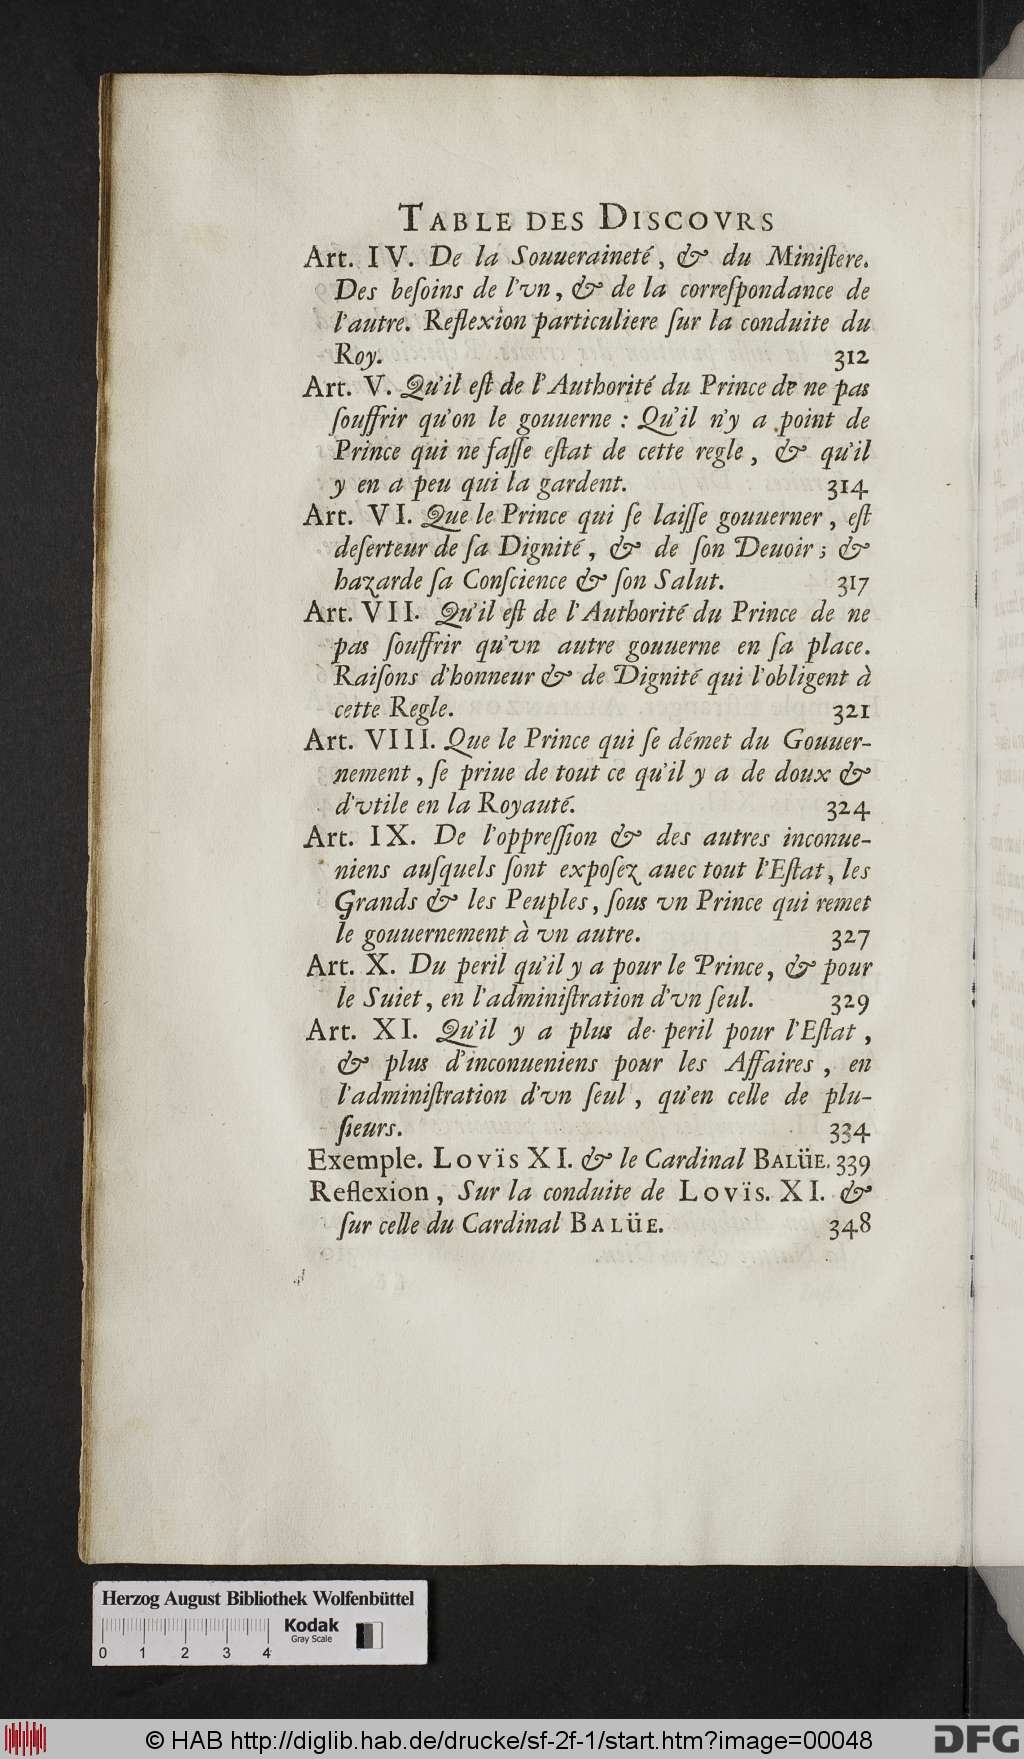 TABLE DES DISCOVRS
Art. IV. De la Souueraineté, & du Miniſtere.
Des beſoins de l'vn, & de la correſpondance de
l'autre. Reflexion particuliere ſur la conduite du
Roy. 312
Art. V. Qu'il eſt de l'Authorité du Prince de ne pas
ſouffrir qu'on le gouuerne : Qu'il n'y a point de
Prince qui ne faſſe eſtat de cette regle, & qu'il
y en a peu qui la gardent. 314
Art. VI. Que le Prince qui ſe laiſſe gouuerner, eſt
deſerteur de ſa Dignité, & de ſon Deuoir ; &
hazarde ſa Conſcience & ſon Salut. 317
Art. VII. Qu'il eſt de l'Authorité du Prince de ne
pas ſouffrir qu'vn autre gouuerne en ſa place.
Raiſons d'honneur & de Dignité qui l'obligent à
cette Regle. 321
Art. VIII. Que le Prince qui ſe démet du Gouuer-
nement, ſe priue de tout ce qu'il y a de doux &
d'vtile en la Royauté. 324
Art. IX. De l'oppreſſion & des autres inconue-
niens auſquels ſont expoſez auec tout l'Eſtat, les
Grands & les Peuples, ſous vn Prince qui remet
le gouuernement à vn autre. 327
Art. X. Du peril qu'il y a pour le Prince, & pour
le Suiet, en l'adminiſtration d'vn ſeul. 329
Art. XI. Qu'il y a plus de peril pour l'Eſtat,
& plus d'inconueniens pour les Affaires, en
l'adminiſtration d'vn ſeul, qu'en celle de plu-
ſieurs. 334
Exemple. LOVÏS XI. & le Cardinal BALÜE. 339
Reflexion, Sur la conduite de LOVÏS. XI. &
ſur celle du Cardinal BALÜE. 348
Herzog August Bibliothek Wolfenbüttel
Kodak
Gray Scale
0 1 2 3 4
© HAB http://diglib.hab.de/drucke/sf-2f-1/start.htm?image=00048
DFG